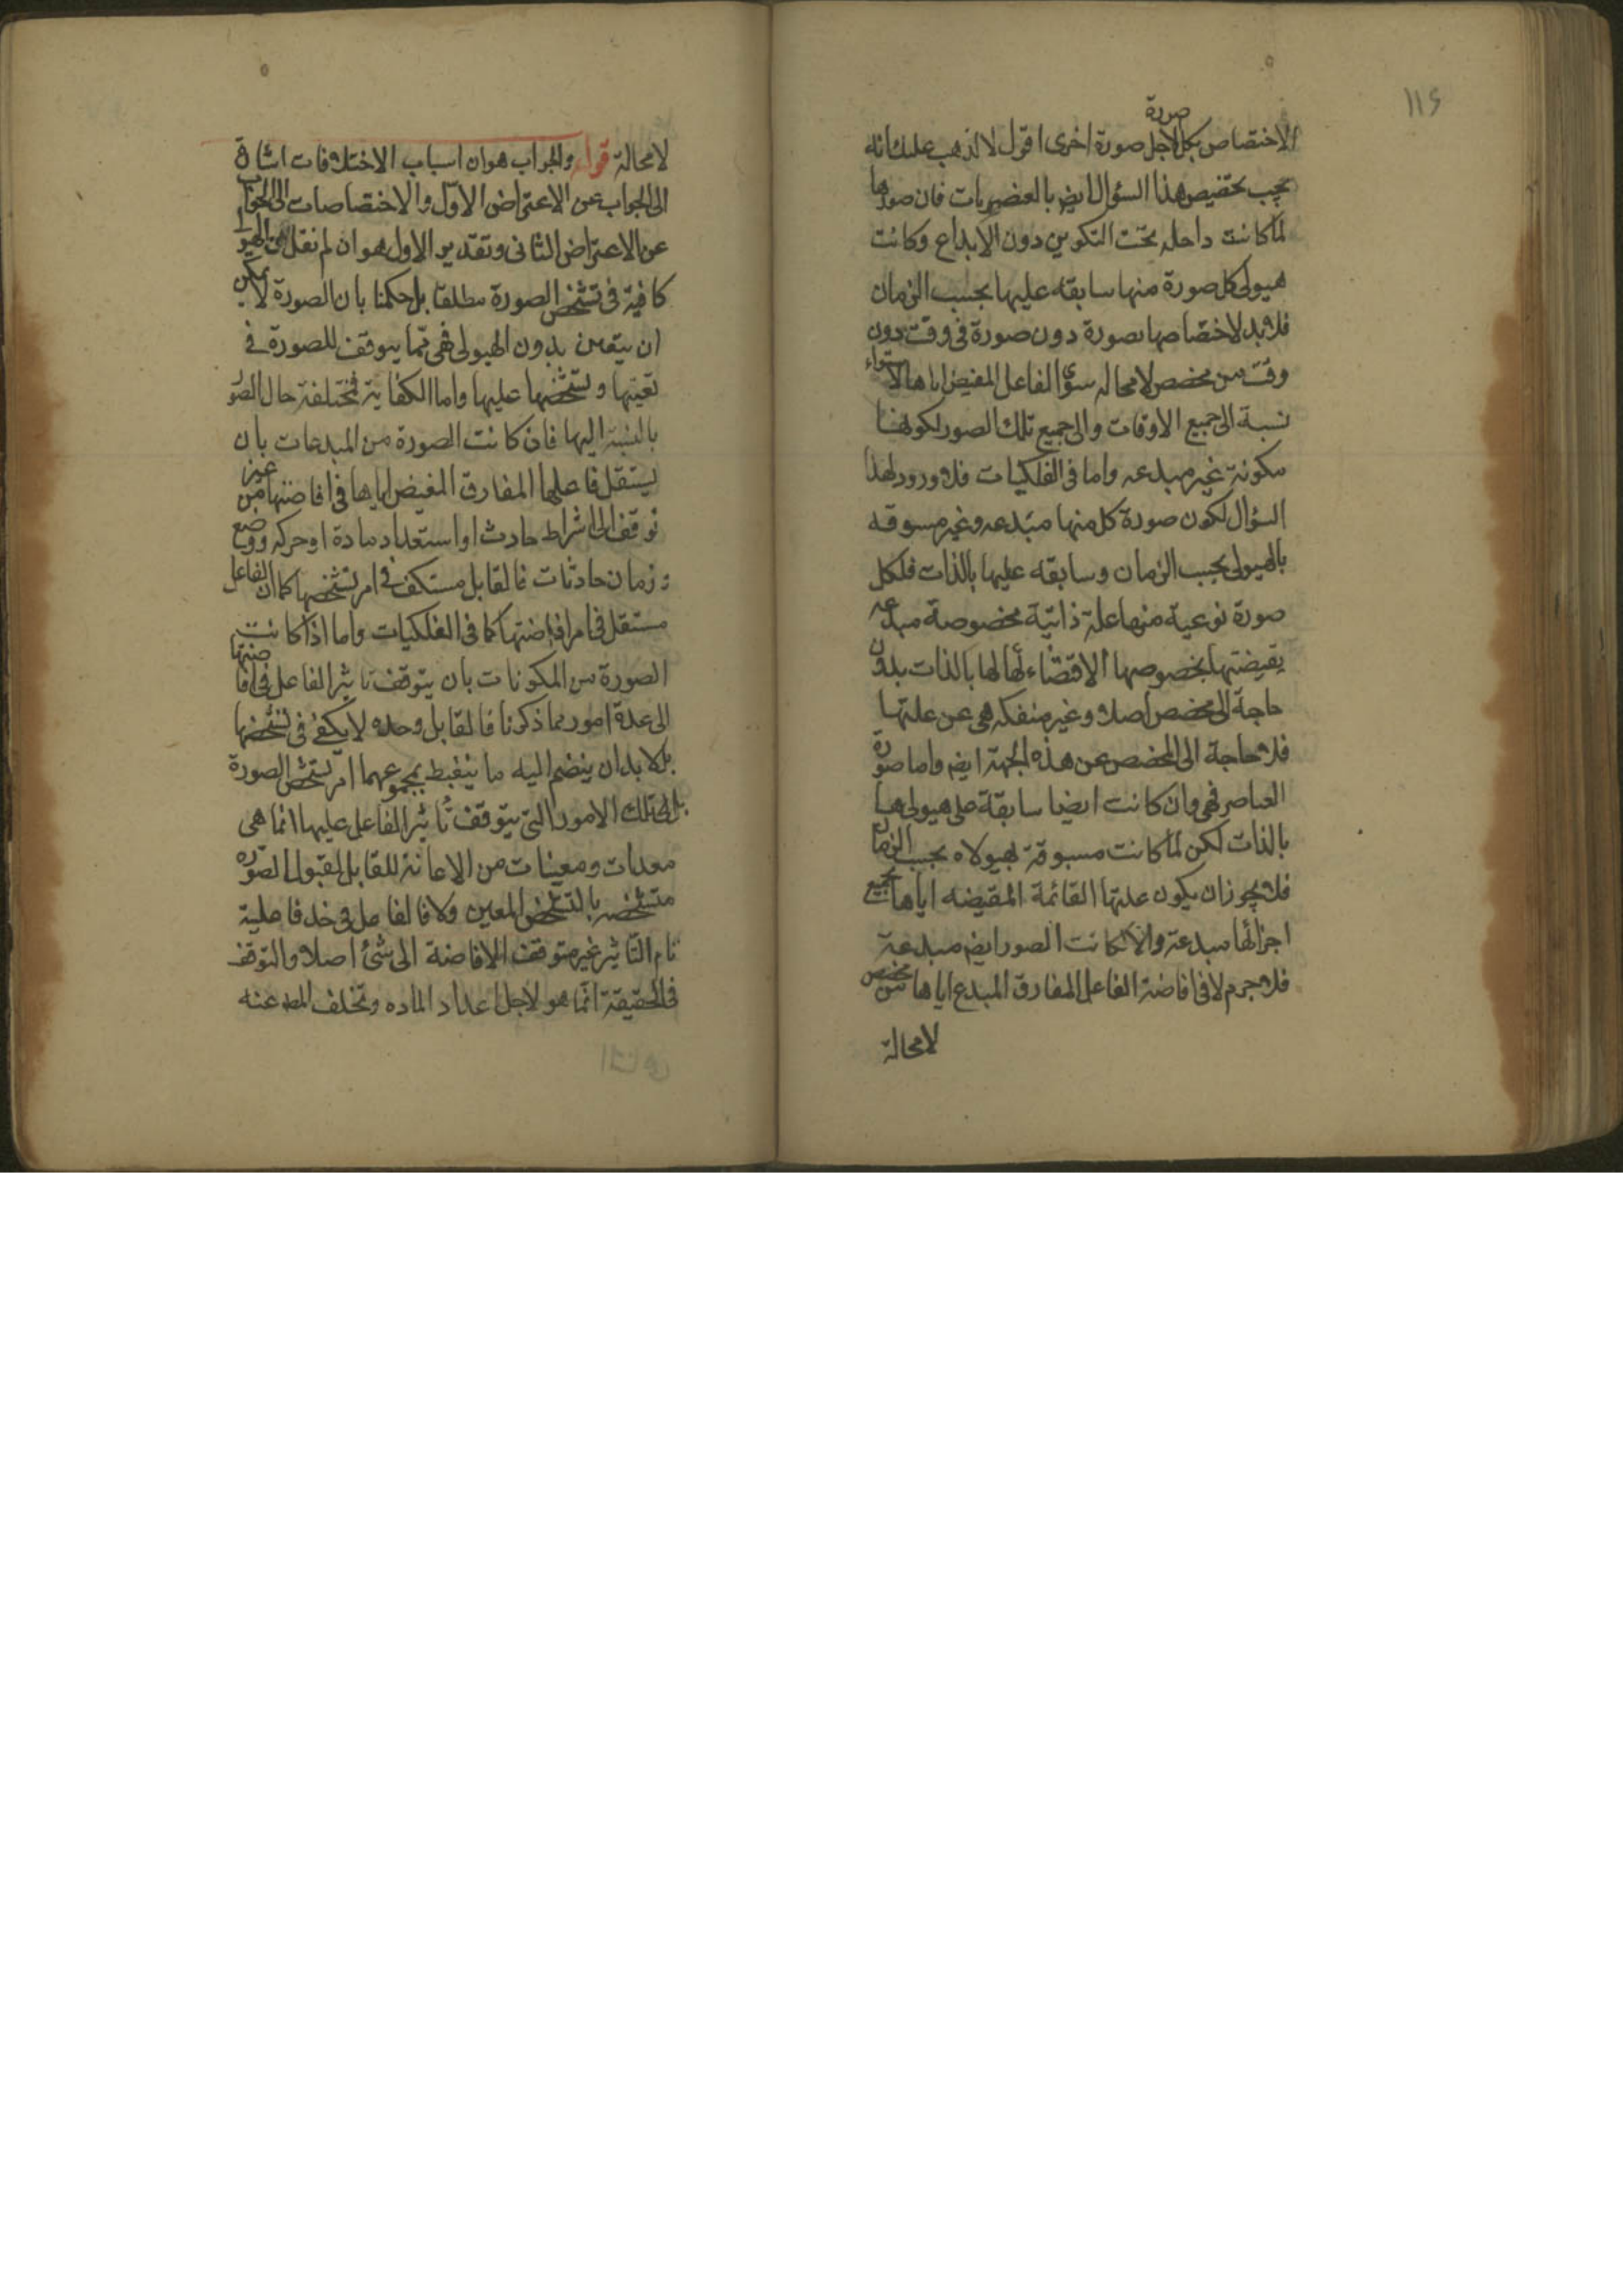 ١١٥
صورة
الاختصاص بكل لاجل صورة اخرى اقول لا يذهب عليك انه
يجب تخصيص هذا السؤال ايضا بالعنصريات فان صورها
لما كانت داخله تحت التكوين دون الابداع وكانت
هيولى كل صورة منها سابقه عليها بحسب الزمان
فلا بد لاختصاصها بصورة دون صورة فى وقت دون
وقت من مخصص لامحاله سوى الفاعل المفيض اياها لاستواء
نسبة الى جميع الاوقات والى جميع تلك الصور لكونها
مكونة غير مبدعه واما فى الفلكيات فلا ورود لهذا
السؤال لكون صورة كل منها مبدعه وغير مسبوقه
بالهيولى بحسب الزمان وسابقه عليها بالذات فلكل
صورة نوعية منها علة ذاتية مخصوصة مبدعه
يقيضتها بخصوصها لاقتضاء لها بالذات بلا
حاجة الى مخصص اصلا وغير منفكه هى عن علتها
فلا حاجة الى المخصص عن هذه الجهة ايض واما صورة
العناصر فهى وان كانت ايضا سابقة على هيولى ها
بالذات لكن لما كانت مسبوقة بهيولاه بحسب الزمان
فلا يجوز ان يكون علتها القائمة المقيضه اياها بجميع
اجزائها مبدعة والا لكانت الصور ايض مبدعة
فلا جرم لا فى افاضة الفاعل المفارق المبدع اياها من مخصص
لامحالة
لامحالة قوله والجواب هو ان اسباب الاختلافات اشارة
الى الجواب عن الاعتراض الاول والاختصاصات الى الجواب
عن الاعتراض الثانى وتقدير الاول هو ان لم نقل ان الهيولى
كافية فى تشخص الصورة مطلقا بل حكمنا بان الصورة لا يمكن
ان يتعين بدون الهيولى فهى مما يتوقف للصورة فى
تعينها وتشخصها عليها واما الكفاية فمختلفة حال الصور
بالنسبة اليها فان كانت الصورة من المبدعات بان
يستقل فاعلها المفارق المفيض اياها فى افاضتها من غير
توقف الى اشراط حادث او استعداد مادة او حركه ووضع
وزمان حادثات فالقابل مستكف فى امر تشخصها كما ان الفاعل
مستقل فى امر افاضتها كما فى الفلكيات واما اذا كانت
الصورة من المكونات بان يتوقف تاثير الفاعل فى افاضتها
الى عدة امور مما ذكرنا فالقابل وحده لا يكفى فى تشخصها
بل لا بد ان ينضم اليه ما ينضبط بمجموعهما امر تشخص الصورة
بل الى تلك الامور التى يتوقف تأثير الفاعل عليها انما هى
معدات ومعينات من الاعانة للقابل لقبول الصورة
متشخصه بالتشخص المعين ولا فالفاعل فى حد فاعلية
تام التأثير غير متوقف الافاضة الى شئ اصلا والتوقف
فى الحقيقة انما هو لاجل اعداد الماده وتخلف المط عنه